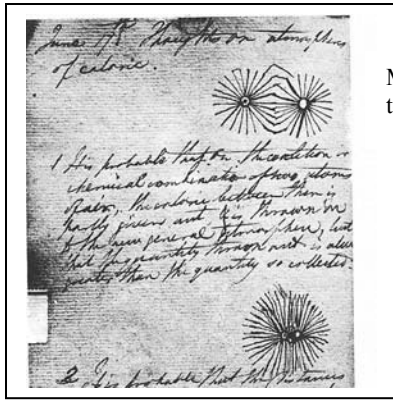 June 17th Thoughts on atmospheres
of caloric.
M
t
1 It is probable that on the coalition or
chemical combination of two atoms
of air, the caloric between them is
partly given out & is thrown on
to the new general atmosphere, but
that the quantity thrown out is
greater than the quantity so collected.
2 It is probable that the distances